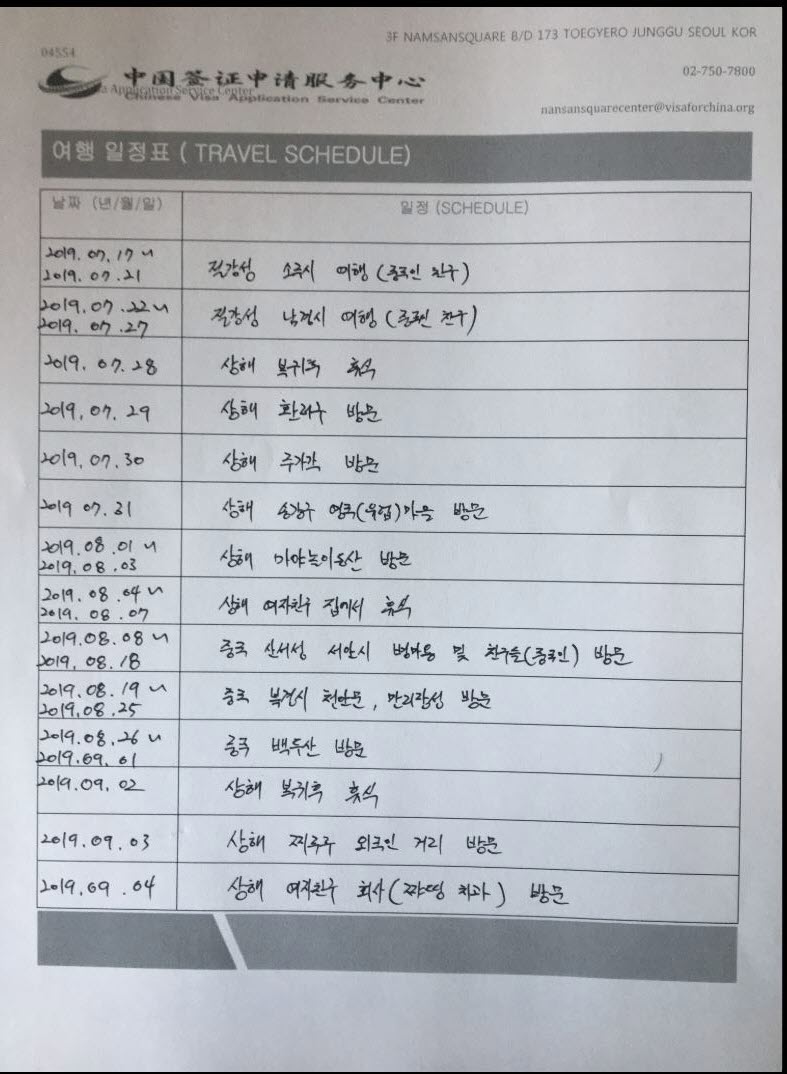 3F NAMSANSQUARE B/D 173 TOEGYERO JUNGGU SEOUL KOR
04554
中国签证申请服务中心
Application Service Center
Chinese Visa Application Service Center
02-750-7800
nansansquarecenter@visaforchina.org
여행 일정표 ( TRAVEL SCHEDULE)
날짜 (년/월/일) 일정 (SCHEDULE)
2019. 07. 17 ~
2019. 07. 21 절강성 소주시 여행 (중국인 친구)
2019. 07. 22 ~
2019. 07. 27 절강성 남경시 여행 (중국인 친구)
2019. 07. 28 상해 복귀후 휴식
2019. 07. 29 상해 방문
2019. 07. 30 상해 주가각 방문
2019 07. 31 상해 송강구 영국(유럽)마을 방문
2019. 08. 01 ~
2019. 08. 03 상해 마야놀이동산 방문
2019. 08. 04 ~
2019. 08. 07 상해 여자친구 집에서 휴식
2019. 08. 08 ~
2019. 08. 18 중국 산서성 서안시 병마용 및 친구들(중국인) 방문
2019. 08. 19 ~
2019. 08. 25 중국 북경시 천안문, 만리장성 방문
2019. 08. 26 ~
2019. 09. 01 중국 백두산 방문
2019. 09. 02 상해 복귀후 휴식
2019. 09. 03 상해 외국인 거리 방문
2019. 09. 04 상해 여자친구 회사 (쨔띵 치과) 방문